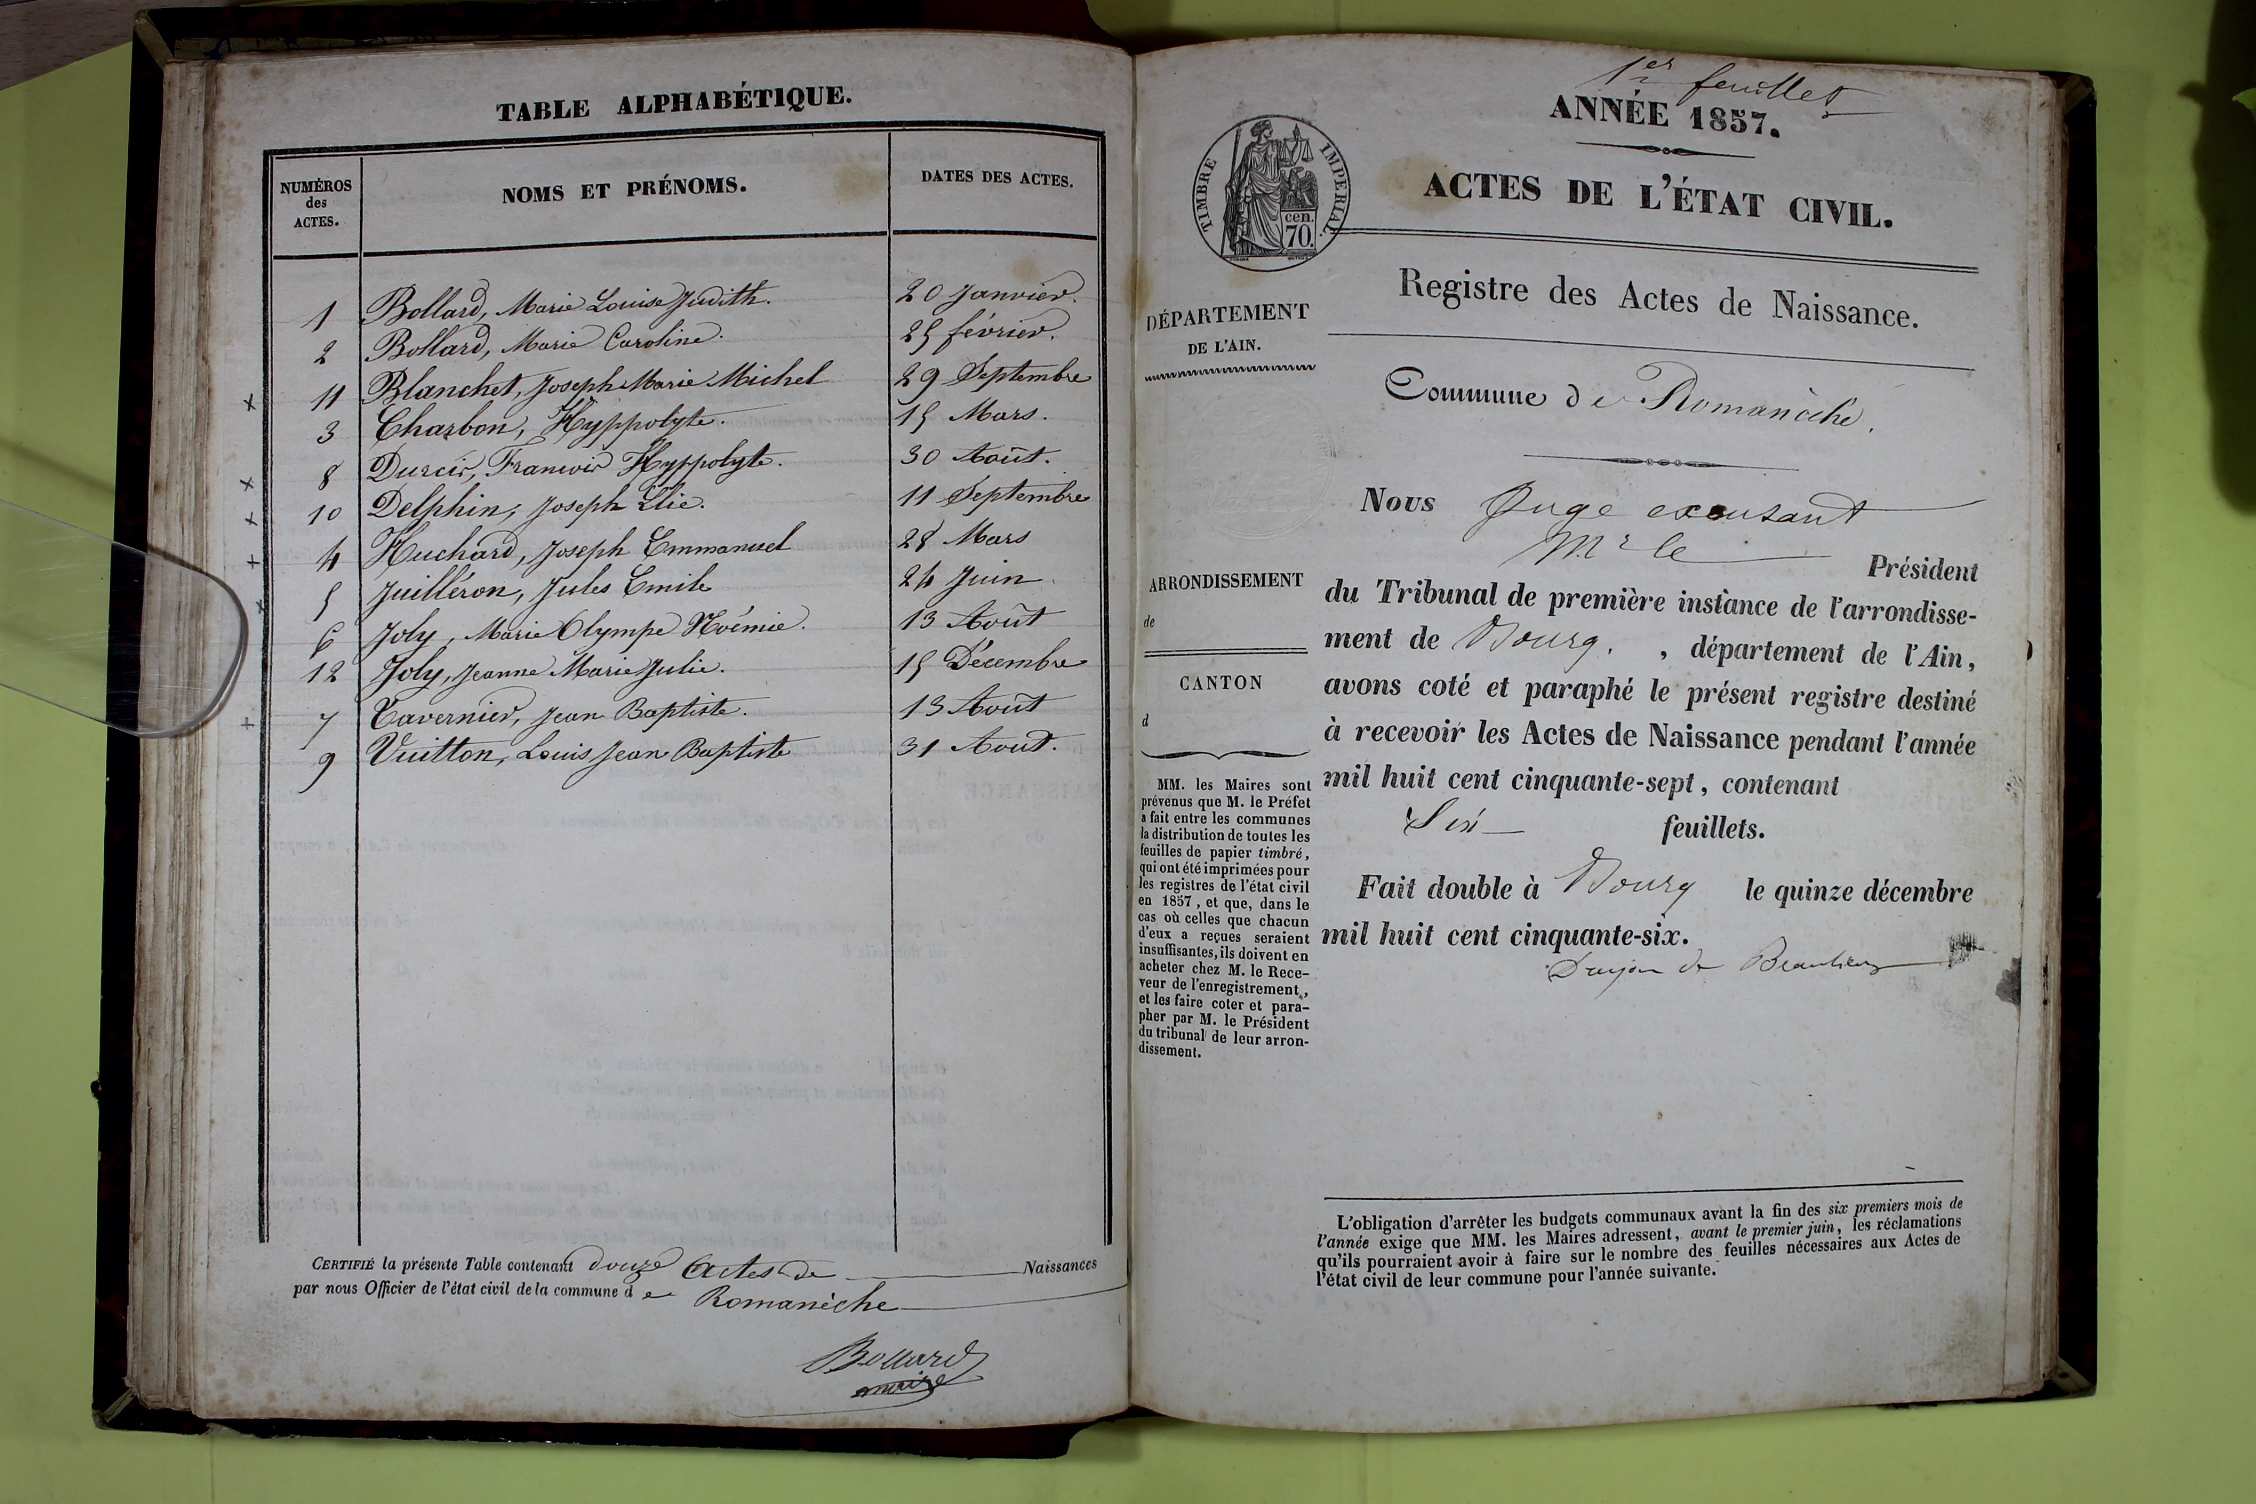 TABLE ALPHABÉTIQUE.
NUMÉROS
des
ACTES.
NOMS ET PRÉNOMS.
DATES DES ACTES.
1 Bollard, Marie Louise Judith. 20 Janvier.
2 Bollard, Marie Caroline. 25 février.
11 Blanchet, Joseph Marie Michel 29 Septembre
3 Charbon, Hyppolyte. 15 Mars.
8 Hyppolyte. 30 Août.
10 Delphin, Joseph Elie. 11 Septembre
4 Huchard, Joseph Emmanuel 28 Mars
5 Juilléron, Jules Emile 24 Juin
6 Joly, Marie Olympe Noémie. 13 Août
12 Joly, Jeanne Marie Julie. 15 Décembre
7 Tavernier, Jean Baptiste. 13 Août
9 Vuitton, Louis Jean Baptiste 31 Aout.
CERTIFIÉ la présente Table contenant douze Actes de Naissances
par nous Officier de l'état civil de la commune de Romanèche
Bollard
maire
1er feuillet
ANNÉE 1857.
ACTES DE L'ÉTAT CIVIL.
TIMBRE IMPERIAL
cen.
70.
Registre des Actes de Naissance.
DÉPARTEMENT
DE L'AIN.
Commune de Romanèche.
Nous Juge excusant
Mr le
Président
du Tribunal de première instance de l'arrondisse-
ment de Bourg. , département de l'Ain,
avons coté et paraphé le présent registre destiné
à recevoir les Actes de Naissance pendant l'année
mil huit cent cinquante-sept, contenant
Six feuillets.
Fait double à Bourg le quinze décembre
mil huit cent cinquante-six.
de Beaulieu
ARRONDISSEMENT
de
CANTON
d
MM. les Maires sont
prévenus que M. le Préfet
a fait entre les communes
la distribution de toutes les
feuilles de papier timbré,
qui ont été imprimées pour
les registres de l'état civil
en 1857, et que, dans le
cas où celles que chacun
d'eux a reçues seraient
insuffisantes, ils doivent en
acheter chez M. le Rece-
veur de l'enregistrement,
et les faire coter et para-
pher par M. le Président
du tribunal de leur arron-
dissement.
L'obligation d'arrêter les budgets communaux avant la fin des six premiers mois de
l'année exige que MM. les Maires adressent, avant le premier juin, les réclamations
qu'ils pourraient avoir à faire sur le nombre des feuilles nécessaires aux Actes de
l'état civil de leur commune pour l'année suivante.